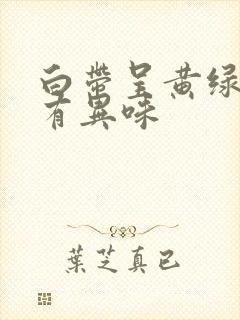 白带呈黄绿
有異味
葉芝真已